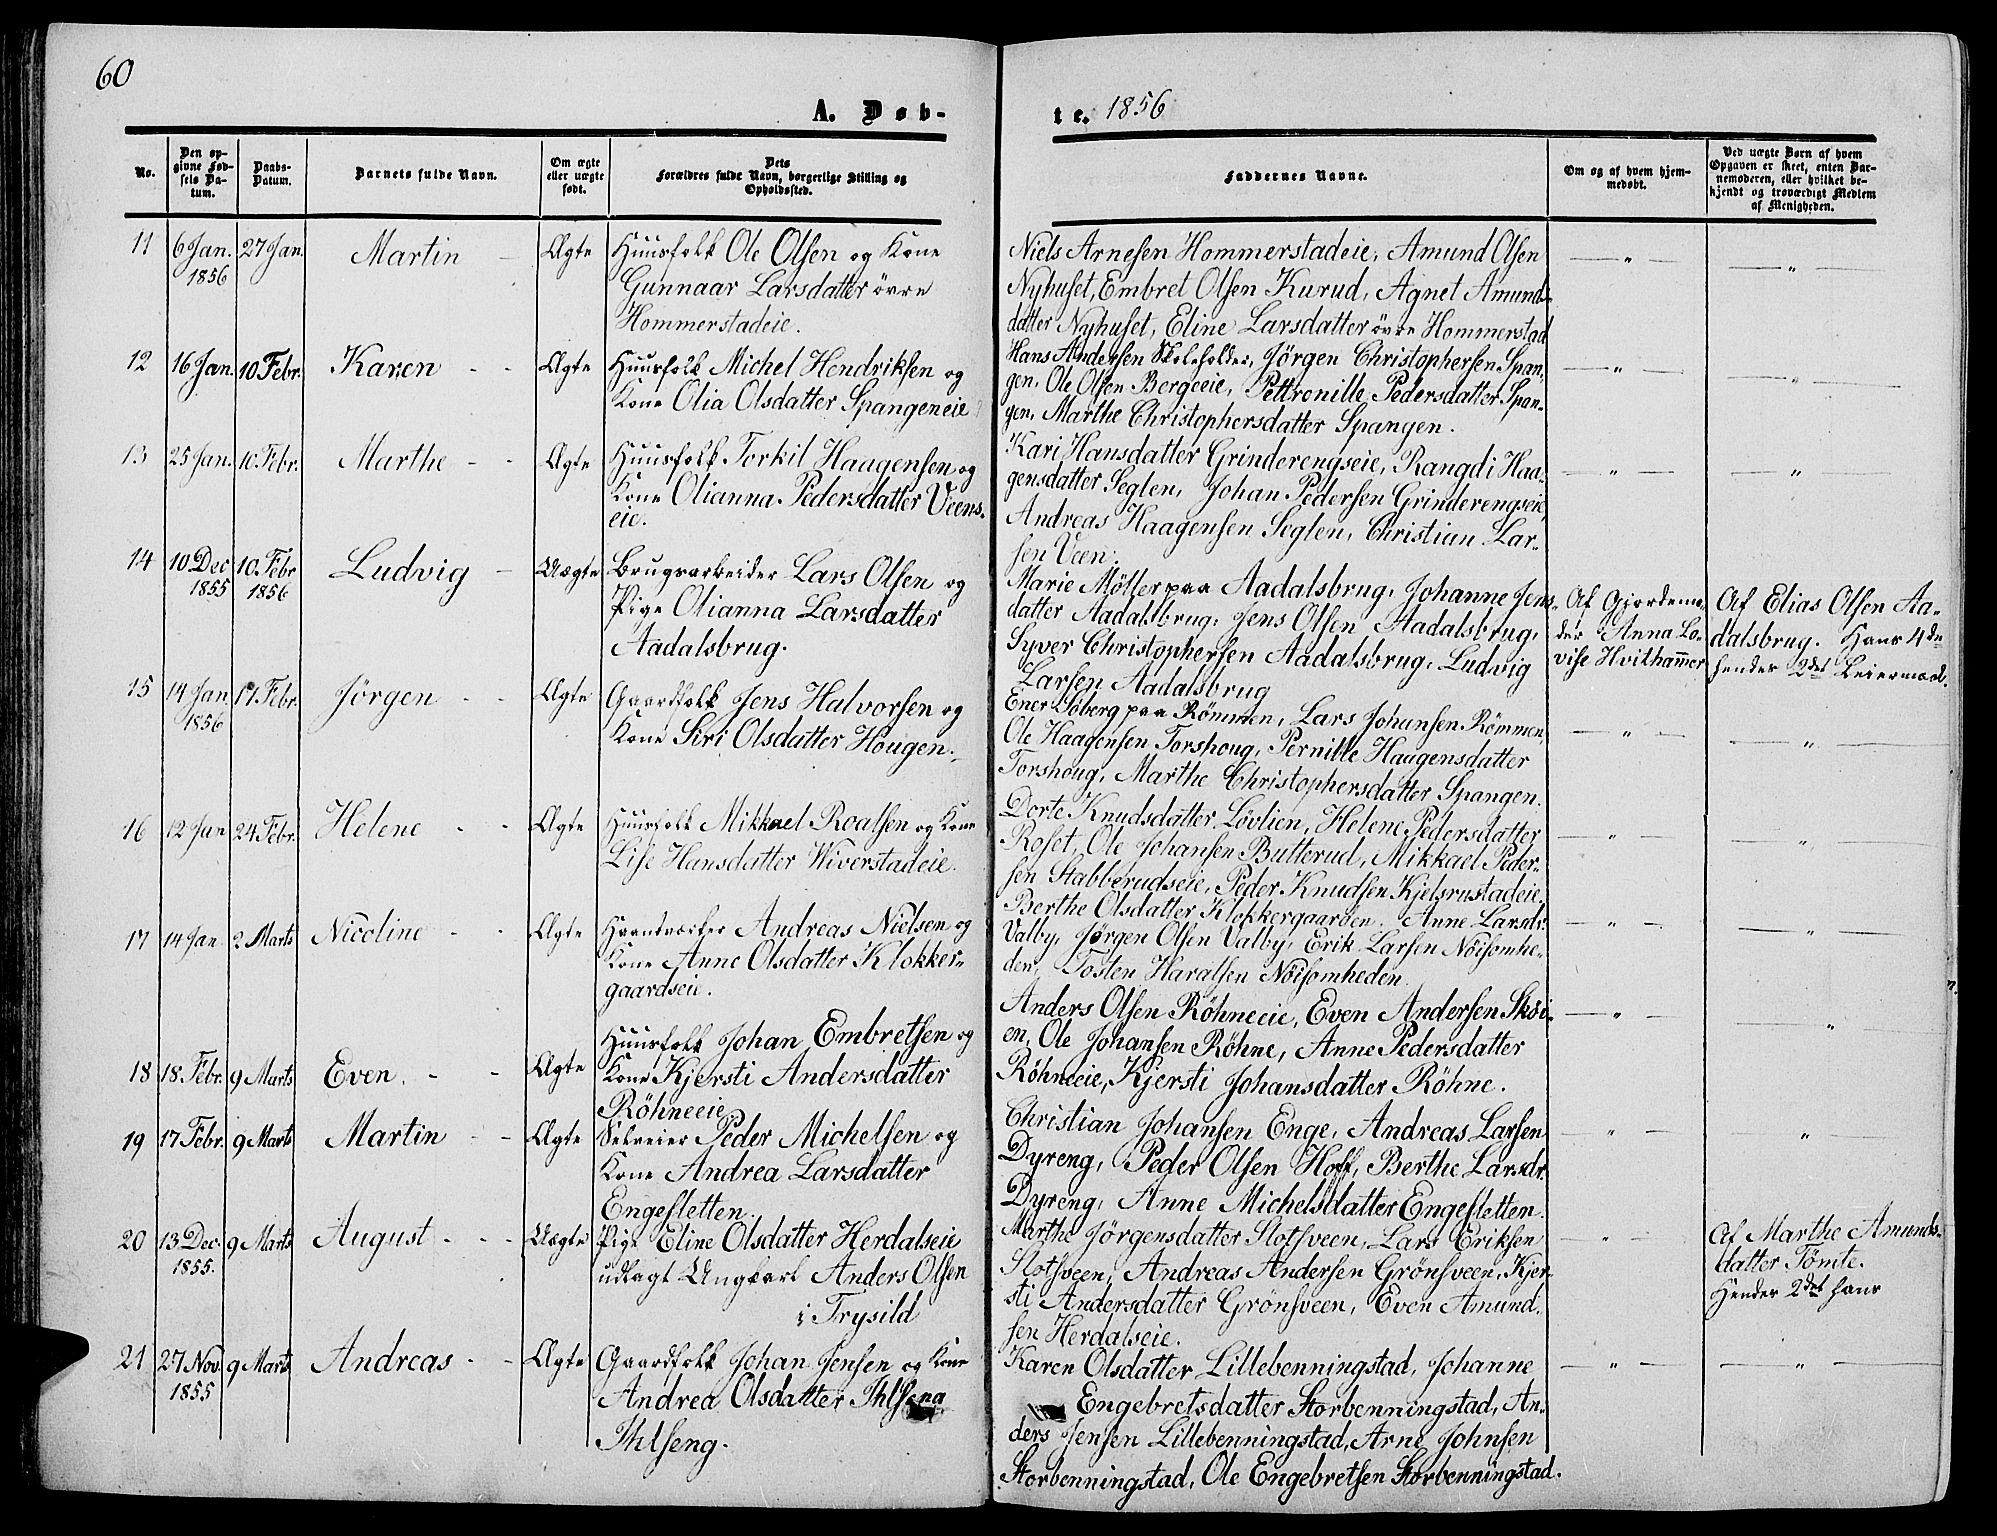 60
A. Døb-
te. 1856
No.
Den op-
givne Fød-
sels Da-
tum.
Daabs-
Datum.
Barnets fulde Navn.
Om ægte
eller uægte
født.
Dets
Forældres fulde Navn, borgerlige Stilling og
Opholdssted.
Faddernes Navne.
Om og af hvem hjem-
medøbt.
Ved uægte Børn af hvem
Opgaven er skeet, enten Bar-
nemoderen, eller hvilket be-
kjendt og troværdigt Medlem
af Menigheden.
11 6 Jan. 27 Jan. Martin - Ægte Huusfolk Ole Olsen og Kone
1856 Gunnaar Larsdatter övre
Hommerstadeie.
Niels Arnesen Hommerstadeie, Amund Olsen
Nyhuset, Embret Olsen Kurud, Agnet Amunds-
datter Nyhuset, Eline Larsdatter övre Hommerstad
12 16 Jan. 10 Febr. Karen - - Ægte Huusfolk Michel Hendriksen og
Kone Olia Olsdatter Spangeneie
Hans Andersen Skoleholder, Jörgen Christophersen Span-
gen, Ole Olsen Bergeeie, Pettronille Pedersdatter Span-
gen, Marthe Christophersdatter Spangen.
13 25 Jan. 10 Febr. Marthe - - Ægte Huusfolk Torkil Haagensen og
Kone Olianna Pedersdatter Veens-
eie.
Kari Hansdatter Grinderengseie, Rangdi Haa-
gensdatter Seglen, Johan Pedersen Grinderengseie,
Andreas Haagensen Seglen, Christian Lar-
sen Veen.
14 10 Dec 10 Febr Ludvig - Uægte Brugsarbeider Lars Olsen og
1855 1856 Pige Olianna Larsdatter
Aadalsbrug.
Marie Möller paa Aadalsbrug, Johanne Jens-
datter Aadalsbrug, Jens Olsen Aadalsbrug,
Syver Christophersen Aadalsbrug, Ludvig
Larsen Aadalsbrug
Af Gjordemo-
der Anna Lo-
vise Hvithammer
Af Elias Olsen Aa-
dalsbrug. Hans 4de
hendes 2det Leiermaal.
15 14 Jan. 17 Febr. Jörgen - - Ægte Gaardfolk Jens Halvorsen og
1856 Kone Siri Olsdatter Hougen.
Ener Söberg paa Römmen, Lars Johansen Römmen,
Ole Haagensen Torshoug, Pernille Haagensdatter
Torshoug, Marthe Christophersdatter Spangen.
16 12 Jan 24 Febr. Helene - - Ægte Huusfolk Mikkael Roalsen og Kone
Lise Hansdatter Wiverstadeie.
Dorte Knudsdatter Lövlien, Helene Pedersdatter
Roset, Ole Johansen Butterud, Mikkael Peder-
sen Stabberudseie, Peder Knudsen Kjelsrustadeie.
17 14 Jan 2 Marts Nicoline - - Ægte Haandverker Andreas Nielsen og
Kone Anne Olsdatter Klokker-
gaardseie.
Berthe Olsdatter Klokkergaarden. Anne Larsdr.
Valby, Jørgen Olsen Valby, Erik Larsen Nöisomhe-
den, Tosten Haralsen Nöisomheden.
18 18 Febr. 9 Marts Even. - - Ægte Huusfolk Johan Embretsen og
Kone Kjersti Andersdatter
Röhneeie
Anders Olsen Röhneeie, Even Andersen Sköi-
en, Ole Johansen Röhne, Anne Pedersdatter
Röhneeie, Kjersti Johansdatter Röhne.
19 17 Febr. 9 Marts Martin - - Ægte Selveier Peder Michelsen og
Kone Andrea Larsdatter
Engesletten.
Christian Johansen Enge, Andreas Larsen
Dyreng, Peder Olsen Hoff, Berthe Larsdr.
Dyreng, Anne Michelsdatter Engesletten.
20 13 Dec. 9 Marts August - - - Uægte Pige Eline Olsdatter Herdalseie
1855. udlagt Ungkarl Anders Olsen
i Trysild
Marthe Jörgensdatter Slotsveen, Lars Eriksen
Slotsveen, Andreas Andersen Grönsveen, Kjer-
sti Andersdatter Grönsveen, Even Amund-
sen Herdalseie.
Af Marthe Amunds-
datter Tömte.
Hendes 2det hans
21 27 Nov. 9 Marts Andreas - - Ægte Gaardfolk Johan Jensen og Kone
1855 Andrea Olsdatter
Ihlseng.
Karen Olsdatter Lillebenningstad, Johanne
Engebretsdatter Storbenningstad, An-
ders Jensen Lillebenningstad, Arne Johnsen
Storbenningstad, Ole Engebretsen Storbenningstad.